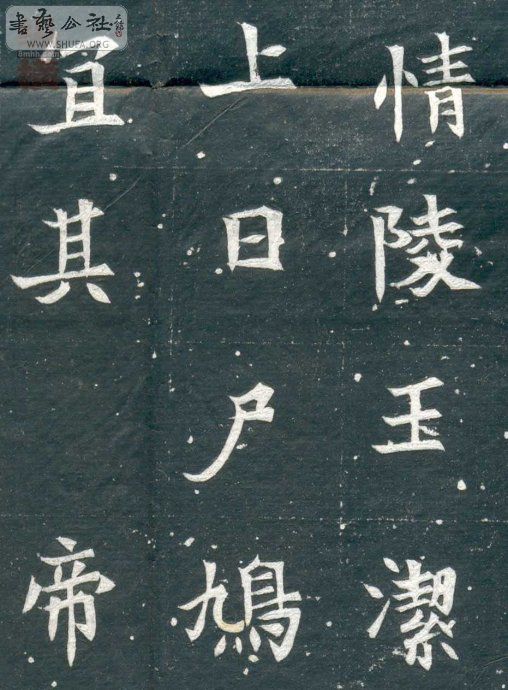 書藝公社
WWW.SHUFA.ORG
情陵王潔
上日尸鳩
其帝